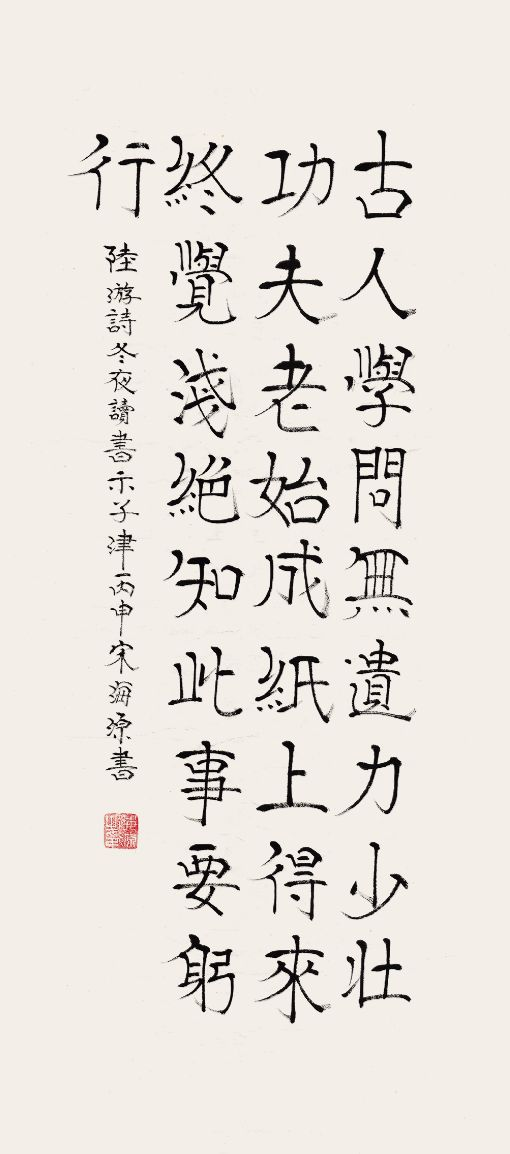 古人學問無遺力少壯
功夫老始成紙上得來
終覺淺絕知此事要躬
行
陸游詩冬夜讀書示子津丙申宋海源書